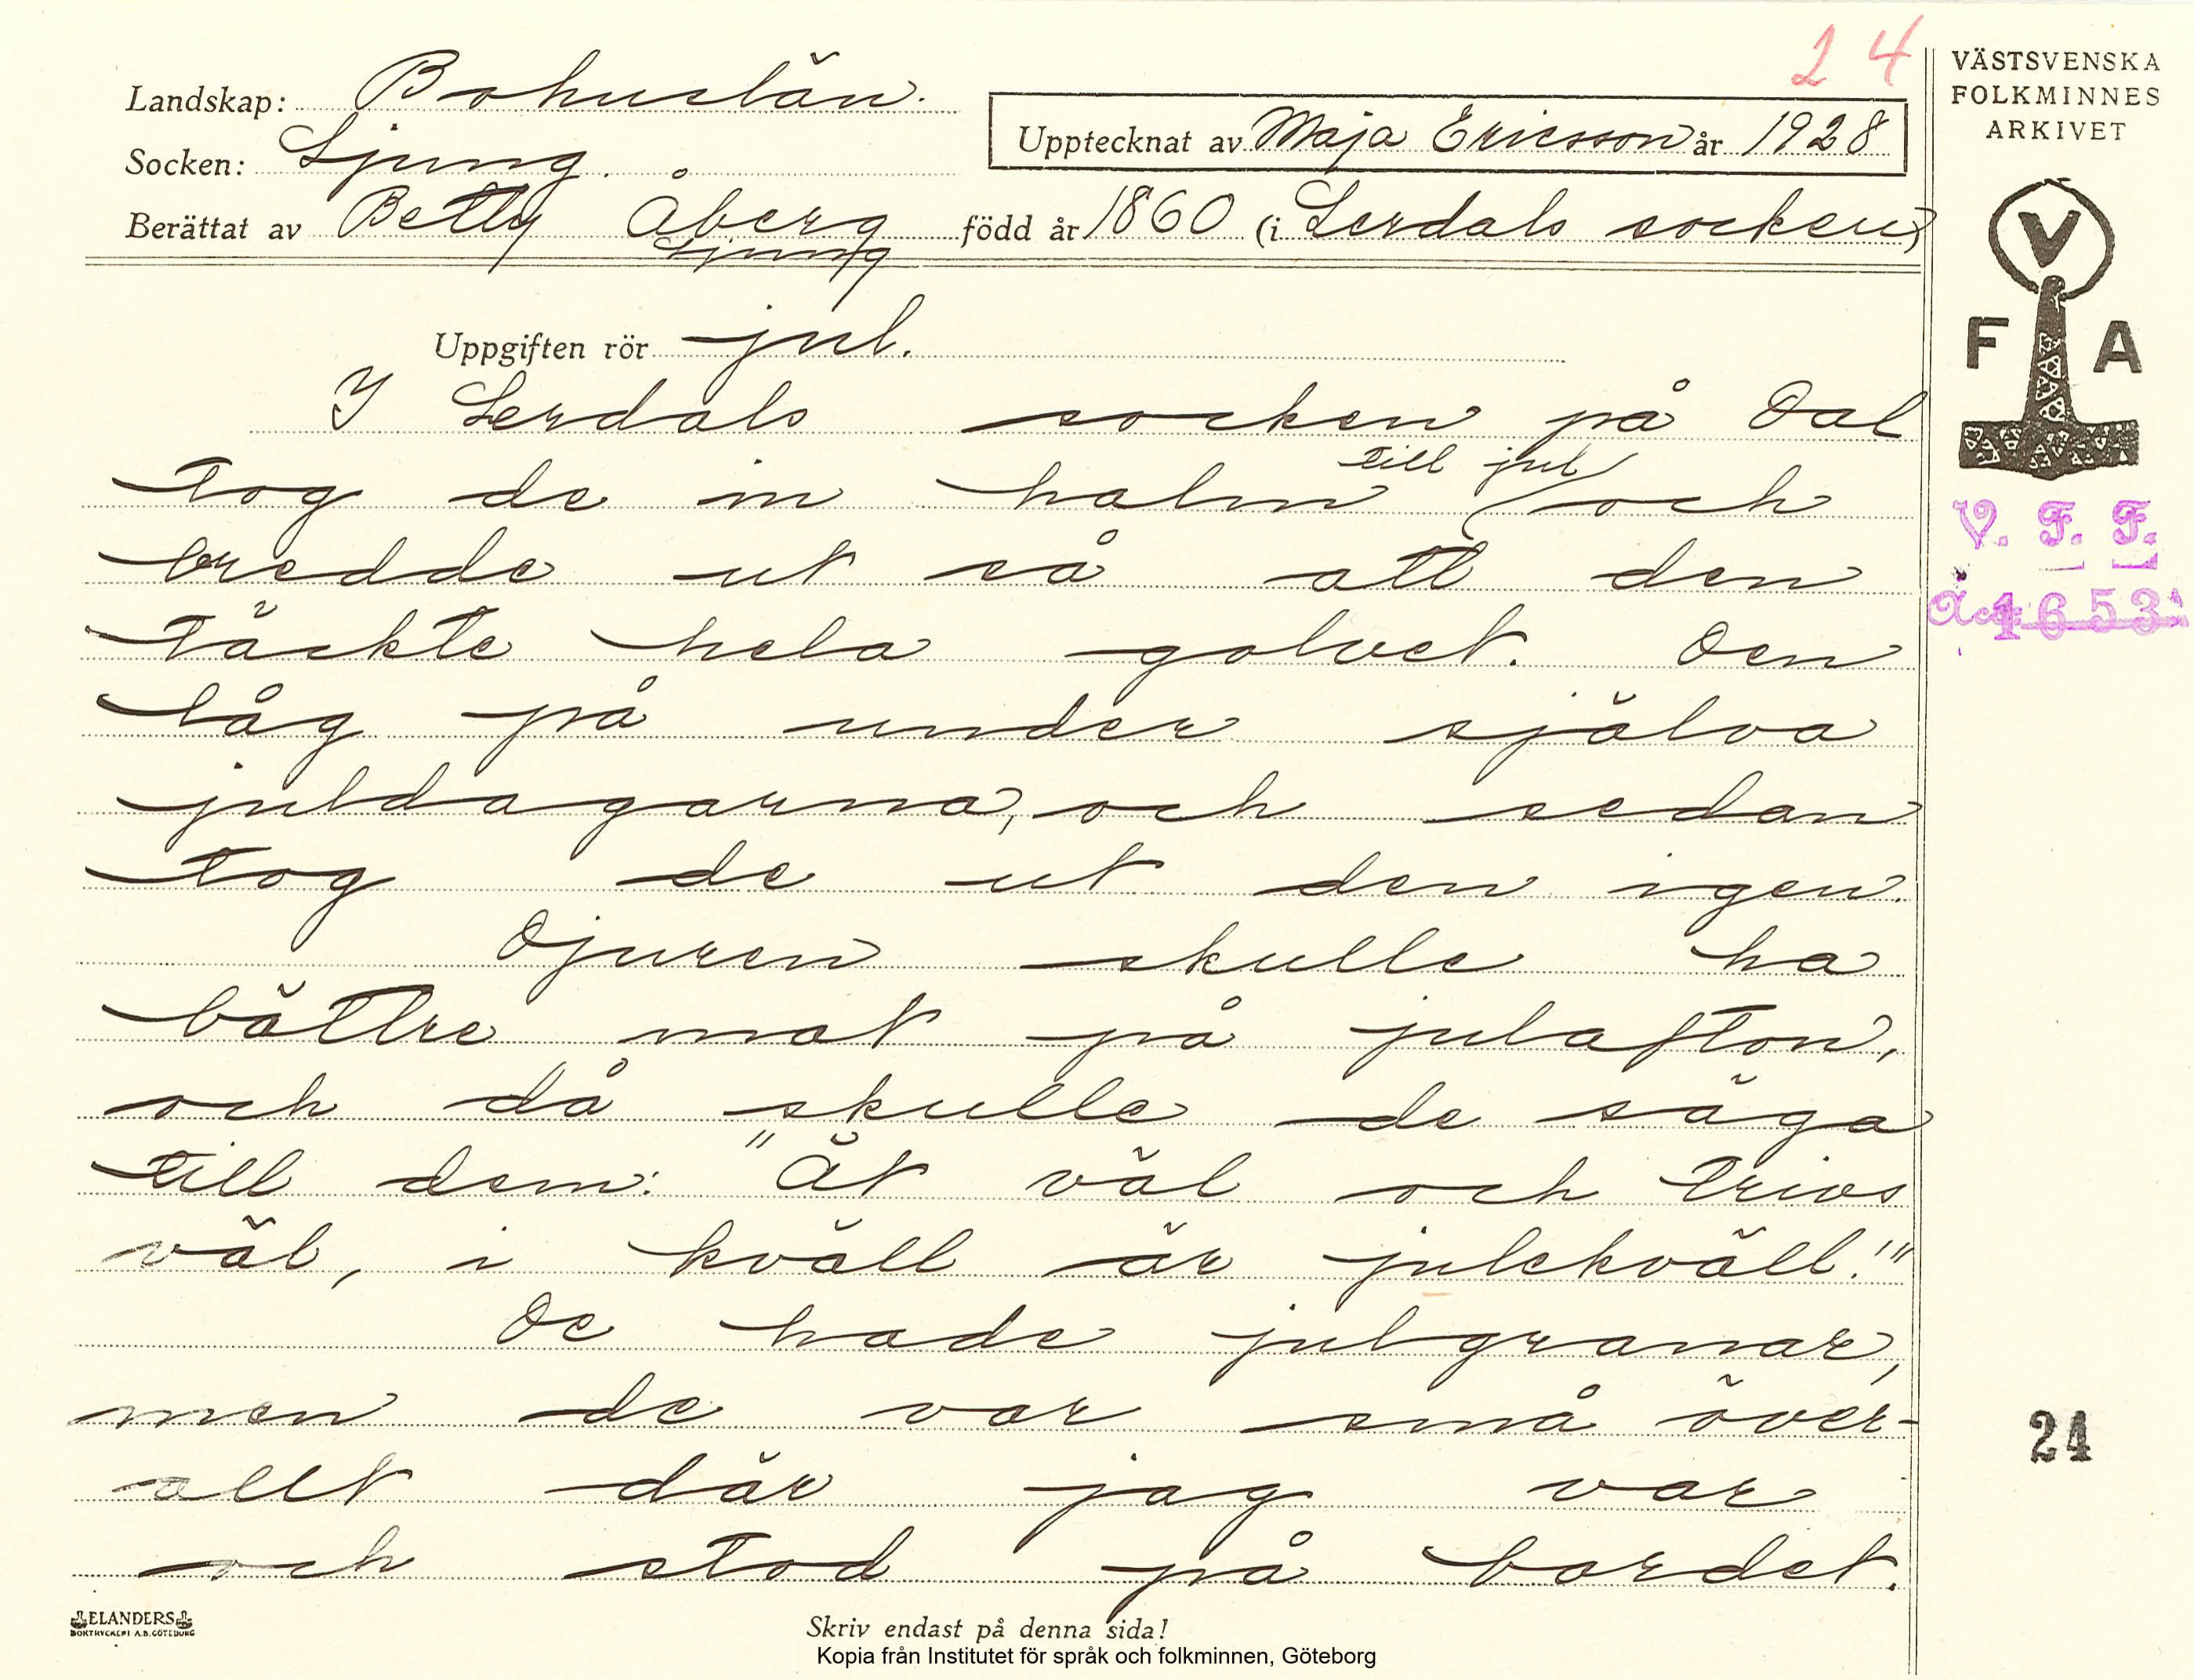 24
VÄSTSVENSKA
FOLKMINNES
ARKIVET
Landskap: Bohuslän.
Upptecknat av Maja Ericsson år 1928
Socken: Ljung.
Berättat av Betty Åberg född år 1860 (i Lerdals socken)
Ljung
V
F A
Uppgiften rör jul.
I Lerdals socken på Dal
till jul
tog de in halm och
bredde ut så att den
täckte hela golvet. Den
låg på under själva
juldagarna, och sedan
tog de ut den igen.
Djuren skulle ha
bättre mat på julafton,
och då skulle de säga
till dem: "Ät väl och trivs
väl, i kväll är julekväll!"
De hade julgranar,
men de var små över-
allt där jag var
och stod på bordet.
V. F. F.
Acc. 1653
24
ELANDERS
BOKTRYCKERI A.B. GÖTEBORG
Skriv endast på denna sida!
Kopia från Institutet för språk och folkminnen, Göteborg